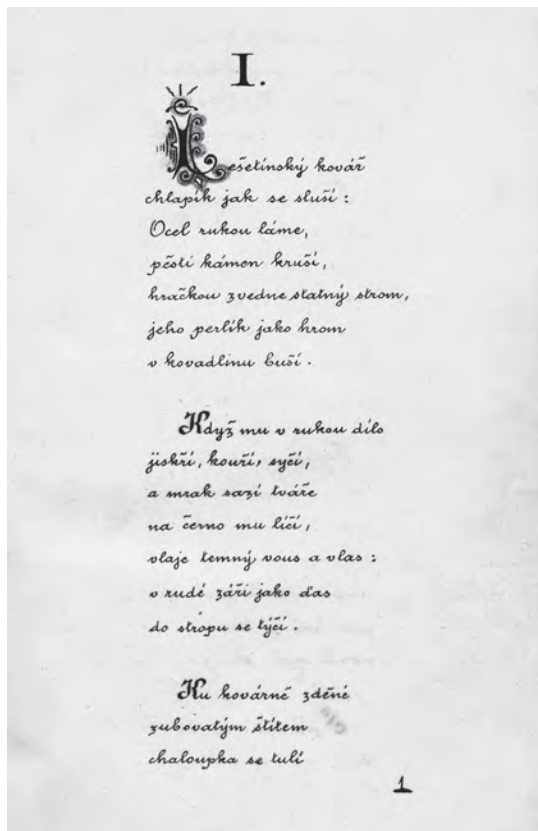 I.
Lešetínský kovář
chlapík jak se sluší :
Ocel rukou láme,
pěstí kámen kruší,
hračkou zvedne statný strom,
jeho perlík jako hrom
v kovadlinu buší.
Když mu v rukou dílo
jiskří, kouří, syčí,
a mrak sazí tváře
na černo mu líčí,
vlaje temný vous a vlas :
v rudé záři jako ďas
do stropu se týčí.
Ku kovárně zděné
zubovatým štítem
chaloupka se tulí
1